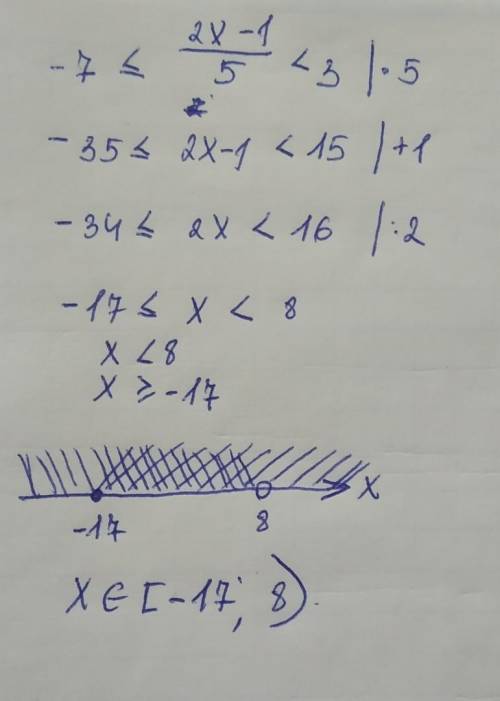 -7 ≤ (2x-1)/5 < 3 |·5
-35 ≤ 2x-1 < 15 |+1
-34 ≤ 2x < 16 |:2
-17 ≤ x < 8
x < 8
x ≥ -17
x
-17 8
x ∈ [-17; 8).